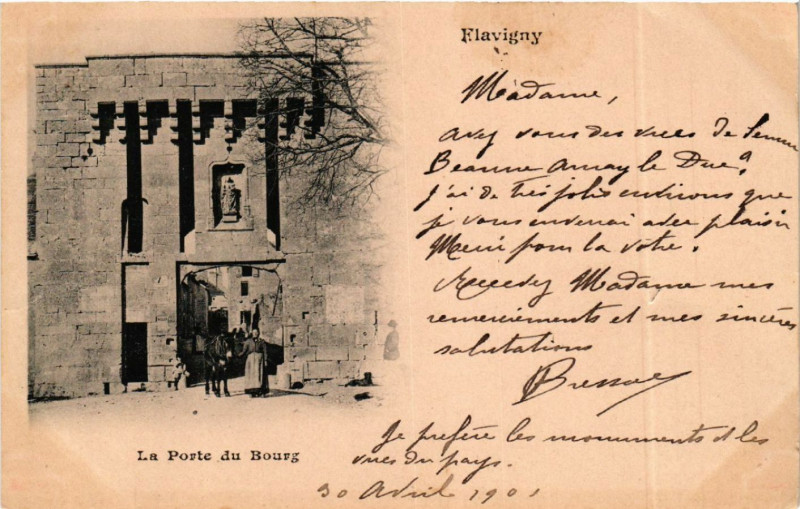 Flavigny
Madame,
avez vous des vues de Semur
Beaune Arnay le Duc ?
J'ai de très jolis environs que
je vous enverrai avec plaisir
Merci pour la vôtre.
Recevez Madame mes
remerciements et mes sincères
salutations
La Porte du Bourg
Je préfère les monuments et les
vues du pays.
30 Avril 1901